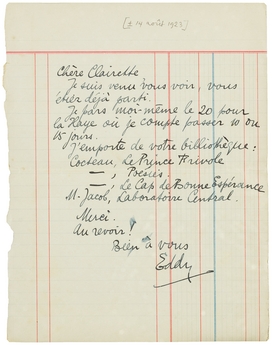 [± 14 août 1923]
Chère Clairette
Je suis venu vous voir, vous
étiez déjà parti.
Je pars moi-même le 20 pour
la Haye où je compte passer 10 ou
15 jours.
J'emporte de votre bibliothèque :
Cocteau, Le Prince Frivole
—, Poésies.
—, Le Cap de Bonne Espérance
M. Jacob, Laboratoire Central.
Merci.
Au revoir !
Bien à vous
Eddy